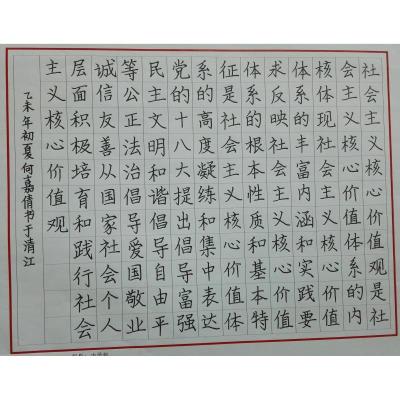 社会主义核心价值观是社
会主义核心价值体系的内
核体现社会主义核心价值
体系的丰富内涵和实践要
求反映社会主义核心价值
体系的根本性质和基本特
征是社会主义核心价值体
系的高度凝练和集中表达
党的十八大提出倡导富强
民主文明和谐倡导自由平
等公正法治倡导爱国敬业
诚信友善从国家社会个人
层面积极培育和践行社会
主义核心价值观
乙未年初夏何嘉倩书于清江